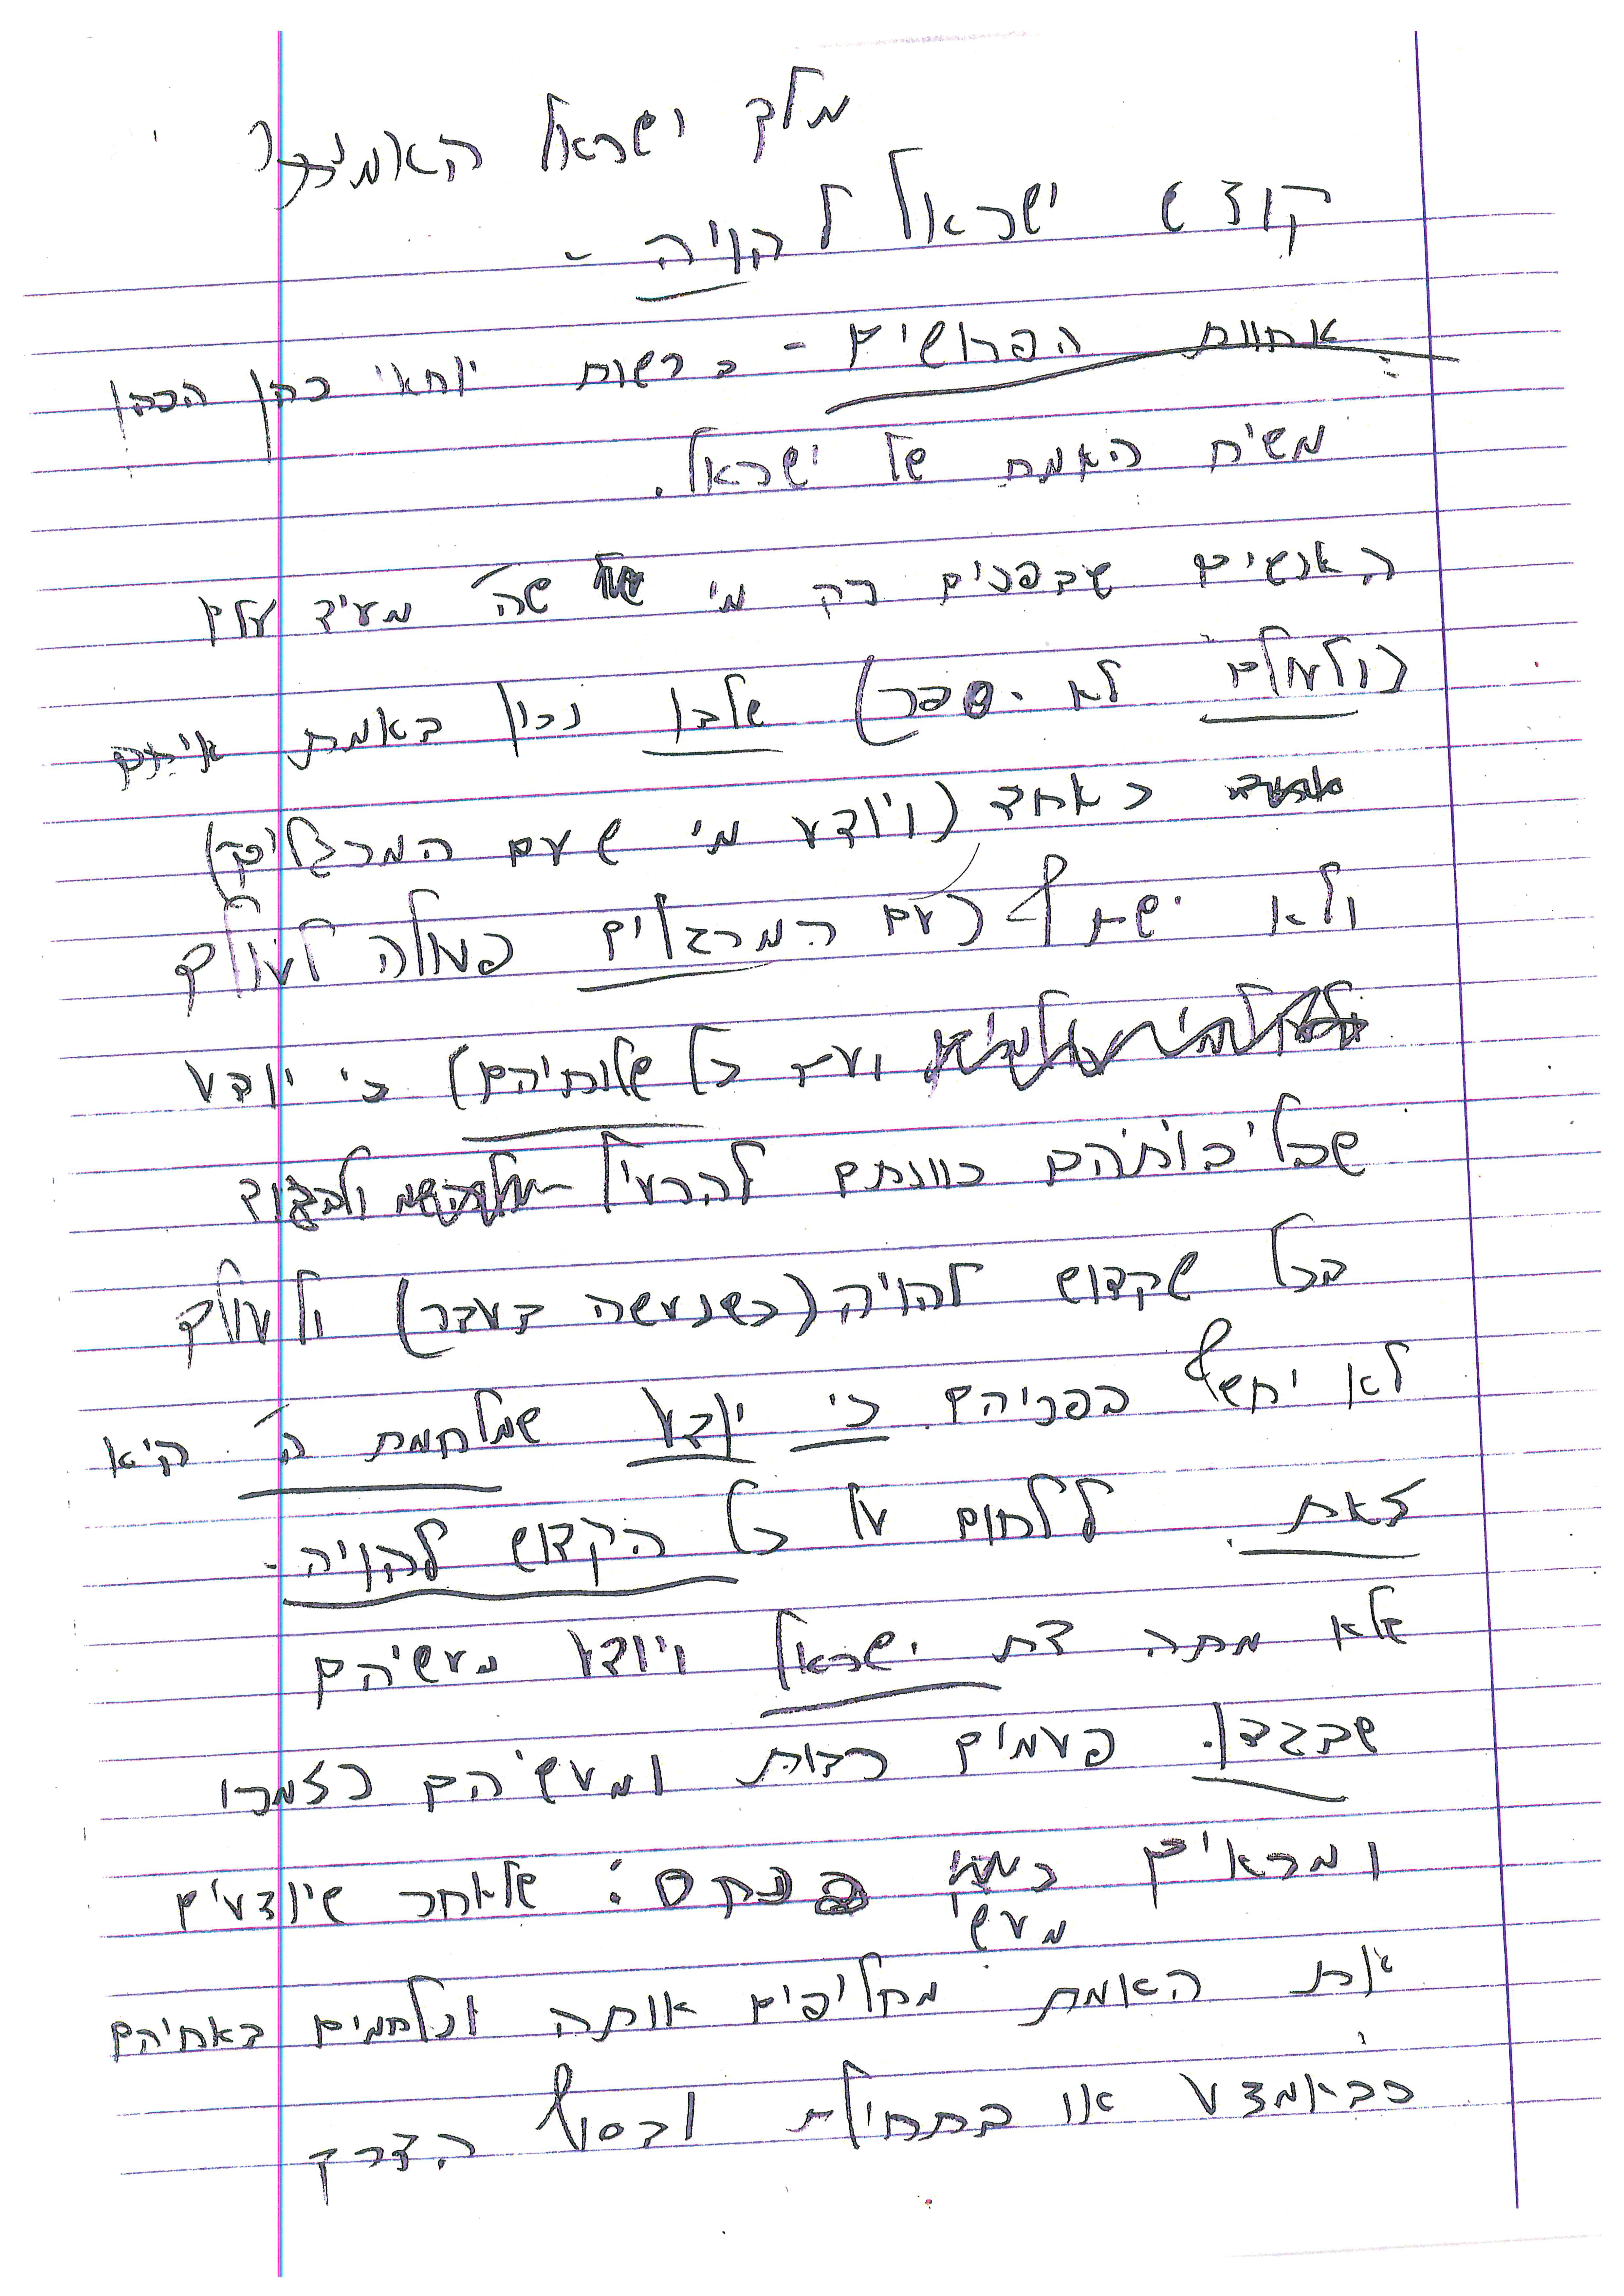 מלך ישראל האמיתי
קודש ישראל להויה -
אחוות הפרושים - ברשות יוחאי כהן הכהן
משיח האמת של ישראל.
האנשים שבפנים רק מי שה' מעיד עליו
(ולעולם לא יספר) שלבו נכון באמת
כאחד (ויודע מי שעם המרגלים)
ולא ישתף (עם המרגלים פעולה לעולם
ועם כל שלוחיהם) כי יודע
שכל כוונתם להכעיל ולבגוד
בכל שקדוש להויה (כשנעשה בעבר) ולעולם
לא יחשף בפניהם כי יודע שמלחמת ה' היא
זאת. ללחום על כל הקדוש להויה -
שלא מתה דת ישראל ויודע מעשיהם
שבגדו. פעמים רבות ומעשיהם כזמרי
ומראים כמעשי פנחס: שלאחר שיודעים
את האמת מחליפים אותה ונלחמים באחיהם
באמצע או בתחילת ובסוף הדרך